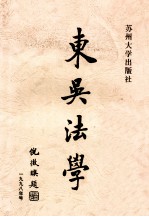 苏州大学出版社
東吳法學
倪徵𣋉題
一九九八年春